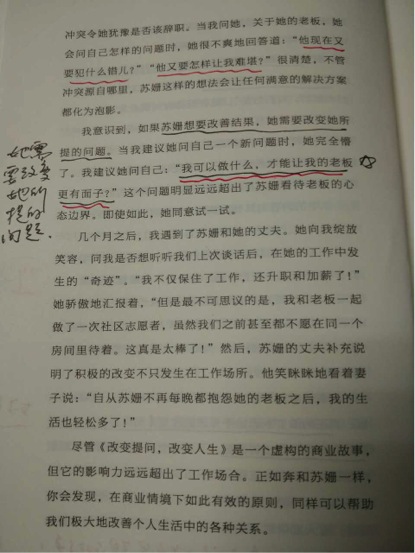 冲突令她犹豫是否该辞职。当我问她，关于她的老板，她
会问自己怎样的问题时，她很不爽地回答道：“他现在又
要犯什么错儿？”“他又要怎样让我难堪？”很清楚，不管
冲突源自哪里，苏姗这样的想法会让任何满意的解决方案
都化为泡影。
我意识到，如果苏姗想要改善结果，她需要改变她所
提的问题。当我建议她问自己一个新问题时，她完全懵
了。我建议她问自己：“我可以做什么，才能让我的老板
更有面子？”这个问题明显远远超出了苏姗看待老板的心
态边界。即使如此，她同意试一试。
她需
要改变
她所
提的
问题.
几个月之后，我遇到了苏姗和她的丈夫。她向我绽放
笑容，问我是否想听听我们上次谈话后，在她的工作中发
生的“奇迹”。“我不仅保住了工作，还升职和加薪了！”
她骄傲地汇报着，“但是最不可思议的是，我和老板一起
做了一次社区志愿者，虽然我们之前甚至都不愿在同一个
房间里待着。这真是太棒了！”然后，苏姗的丈夫补充说
明了积极的改变不只发生在工作场所。他笑眯眯地看着妻
子说：“自从苏姗不再每晚都抱怨她的老板之后，我的生
活也轻松多了！”
尽管《改变提问，改变人生》是一个虚构的商业故事，
但它的影响力远远超出了工作场合。正如奔和苏姗一样，
你会发现，在商业情境下如此有效的原则，同样可以帮助
我们极大地改善个人生活中的各种关系。